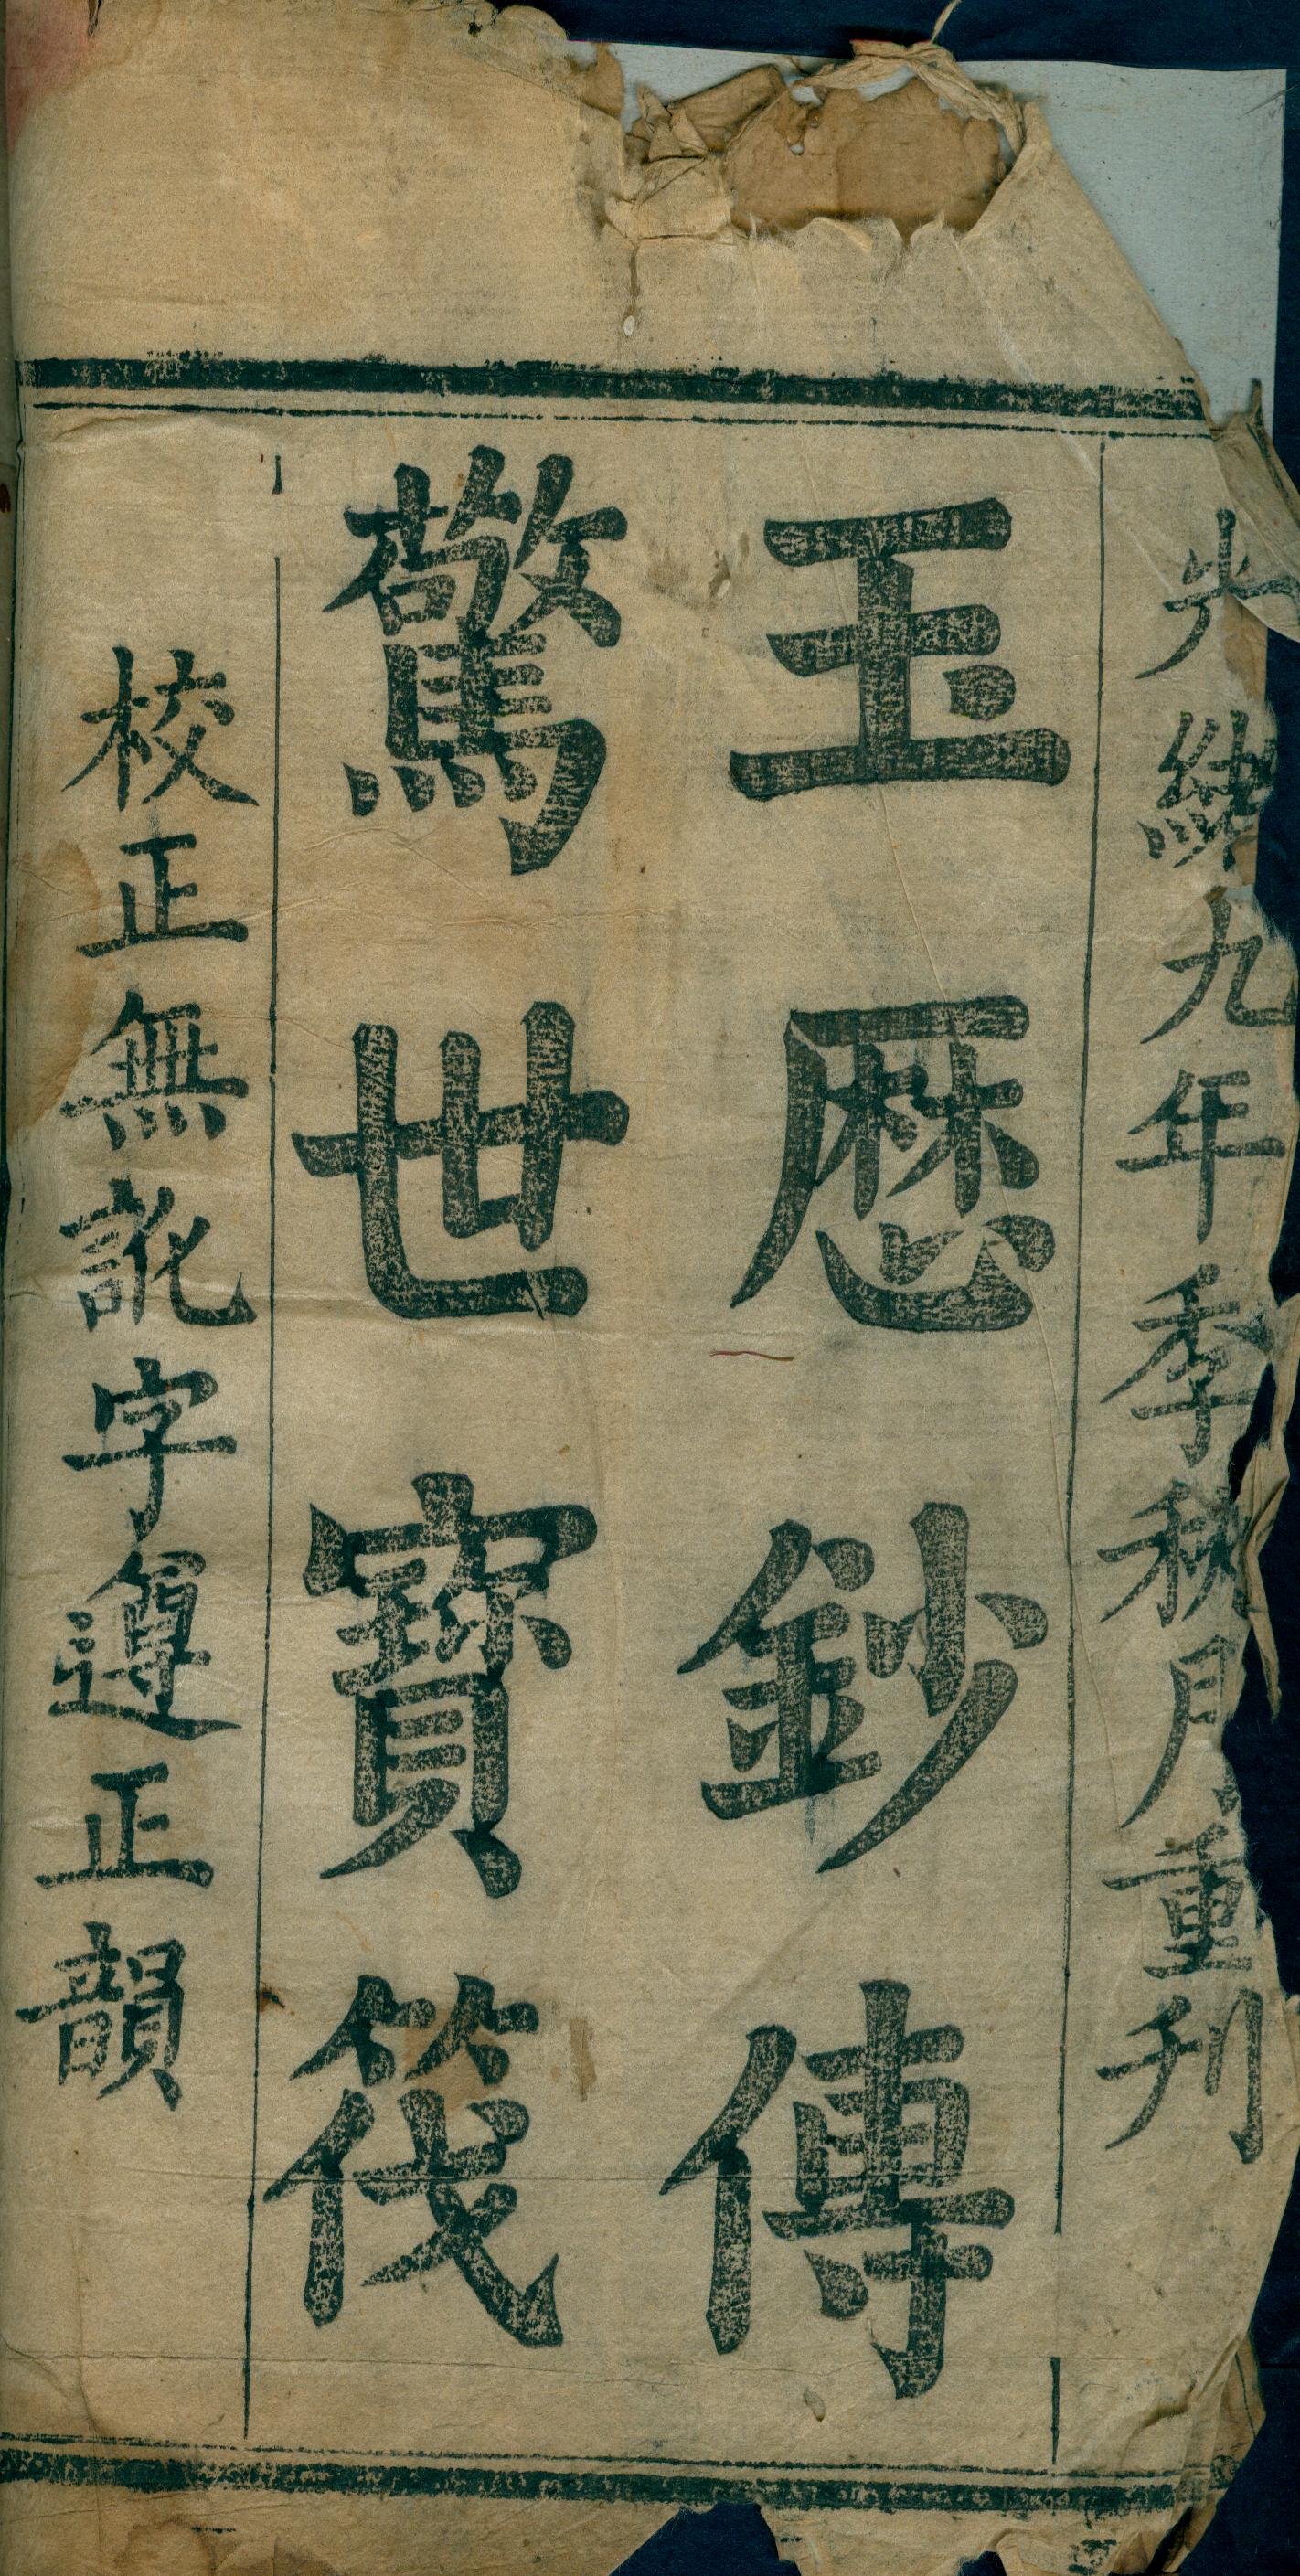 光緒九年季秋月重刊
玉歴鈔傳
驚世寶筏
校正無訛字遵正韻